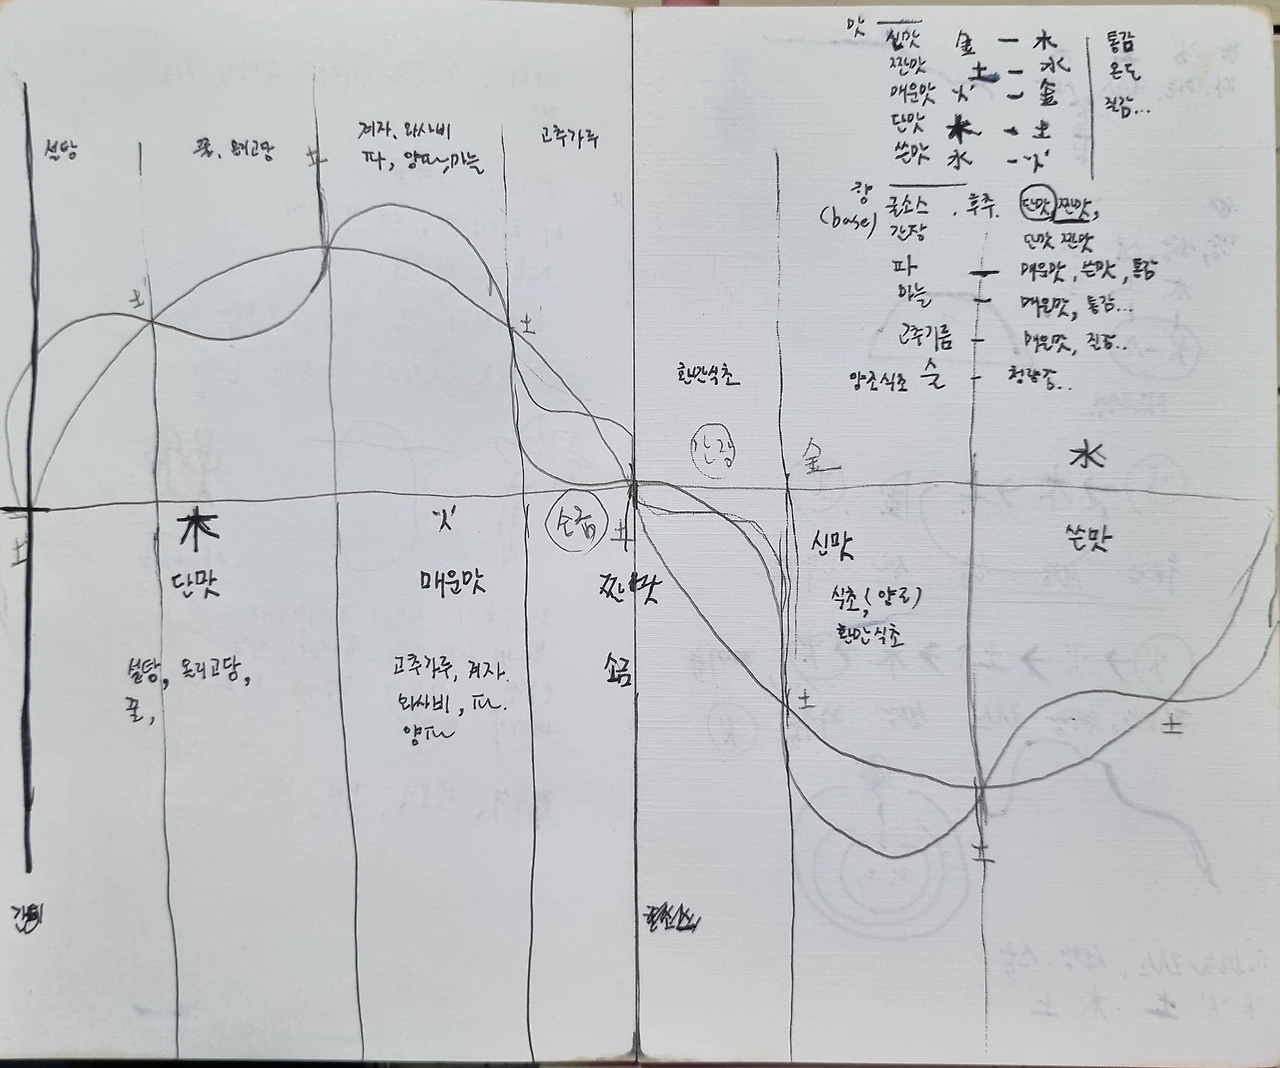 설탕
꿀, 올리고당
土
겨자, 와사비
파, 양파, 마늘
고추가루
土
土
土
木
단맛
설탕, 올리고당,
꿀,
火
매운맛
고추가루, 겨자.
와사비, 파.
양파
소금
土
짠맛
소금
맛
신맛 金 - 木
짠맛 土 - 水
매운맛 火 - 金
단맛 木 - 土
쓴맛 水 - 火
통감
온도
질감...
향
(base)
굴소스 . 후추. 단맛, 짠맛,
간장 단맛 짠맛
파 - 매운맛, 쓴맛, 통감
마늘 - 매운맛, 통감...
고추기름 - 매운맛, 질감..
양조식초 술 - 청량감..
환만식초
간장
金
水
신맛
식초, (양조)
환만식초
쓴맛
土
土
土